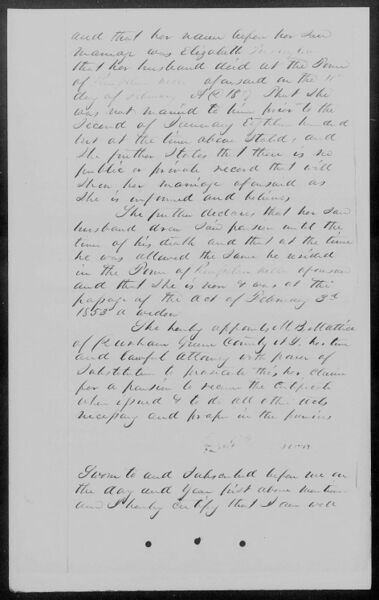 and that her name before her said
marriage was Elizabeth
that her husband died at the Town
of aforesaid on the
day of February A.D. 18 That she
was not married to him prior to the
Second of January Eighteen hundred
but at the time above Stated, and
She further States that there is no
public or private record that will
Show her marriage aforesaid as
She is informed and believes
She further declares that her Said
husband drew Said pension until the
time of his death and that at the time
he was allowed the Same he resided
in the Town of aforesaid
and that she is now & was at the
passage of the Act of February 3rd
1853 a widow
She hereby appoints M B Mattice
of Durham Greene County N.Y. her true
and lawful Attorney with power of
Substitution to prosecute this, her claim
for a pension to receive the Certificate
when issued & to do all other acts
necessary and proper in the premises
Sworn to and Subscribed before me on
the day and year first above written
and I hereby certify that I am well